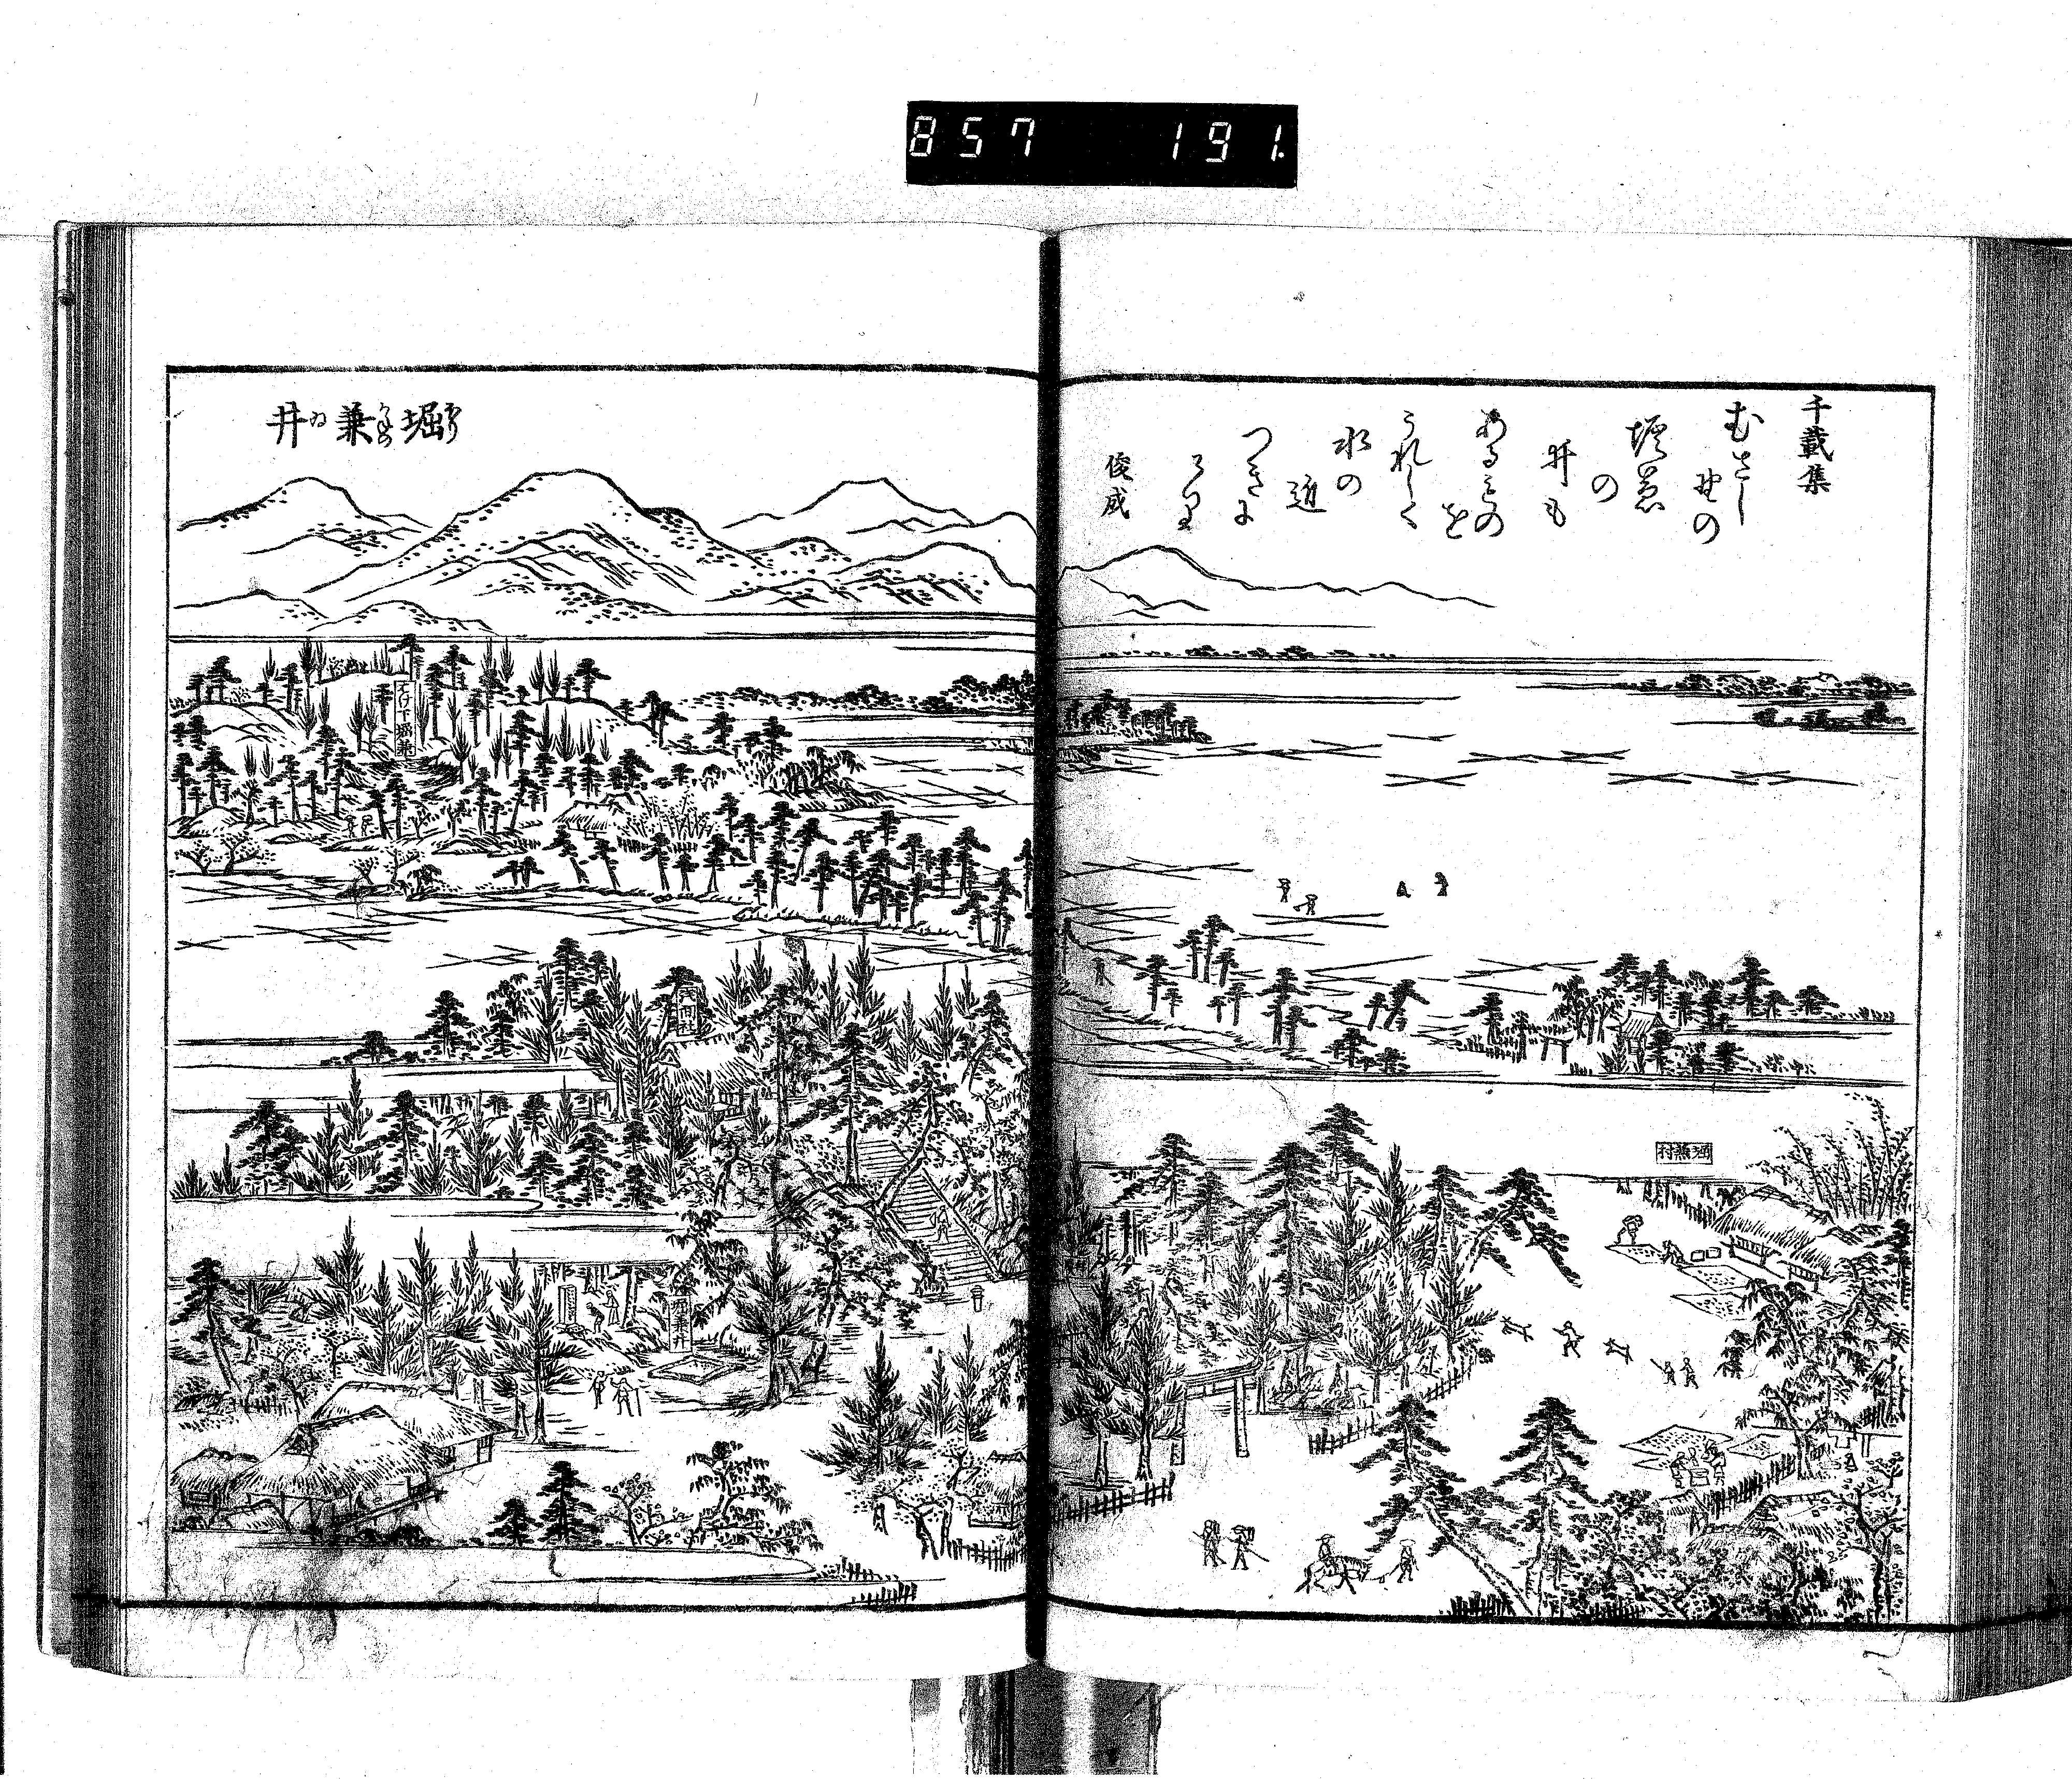 857 191.
千載集
むさし
野の
堀兼
の
井も
あるものを
うれしく
水の
近
つきに
けり
俊成
堀兼井
ほりかねゐ
堀兼村
浅間社
堀兼井